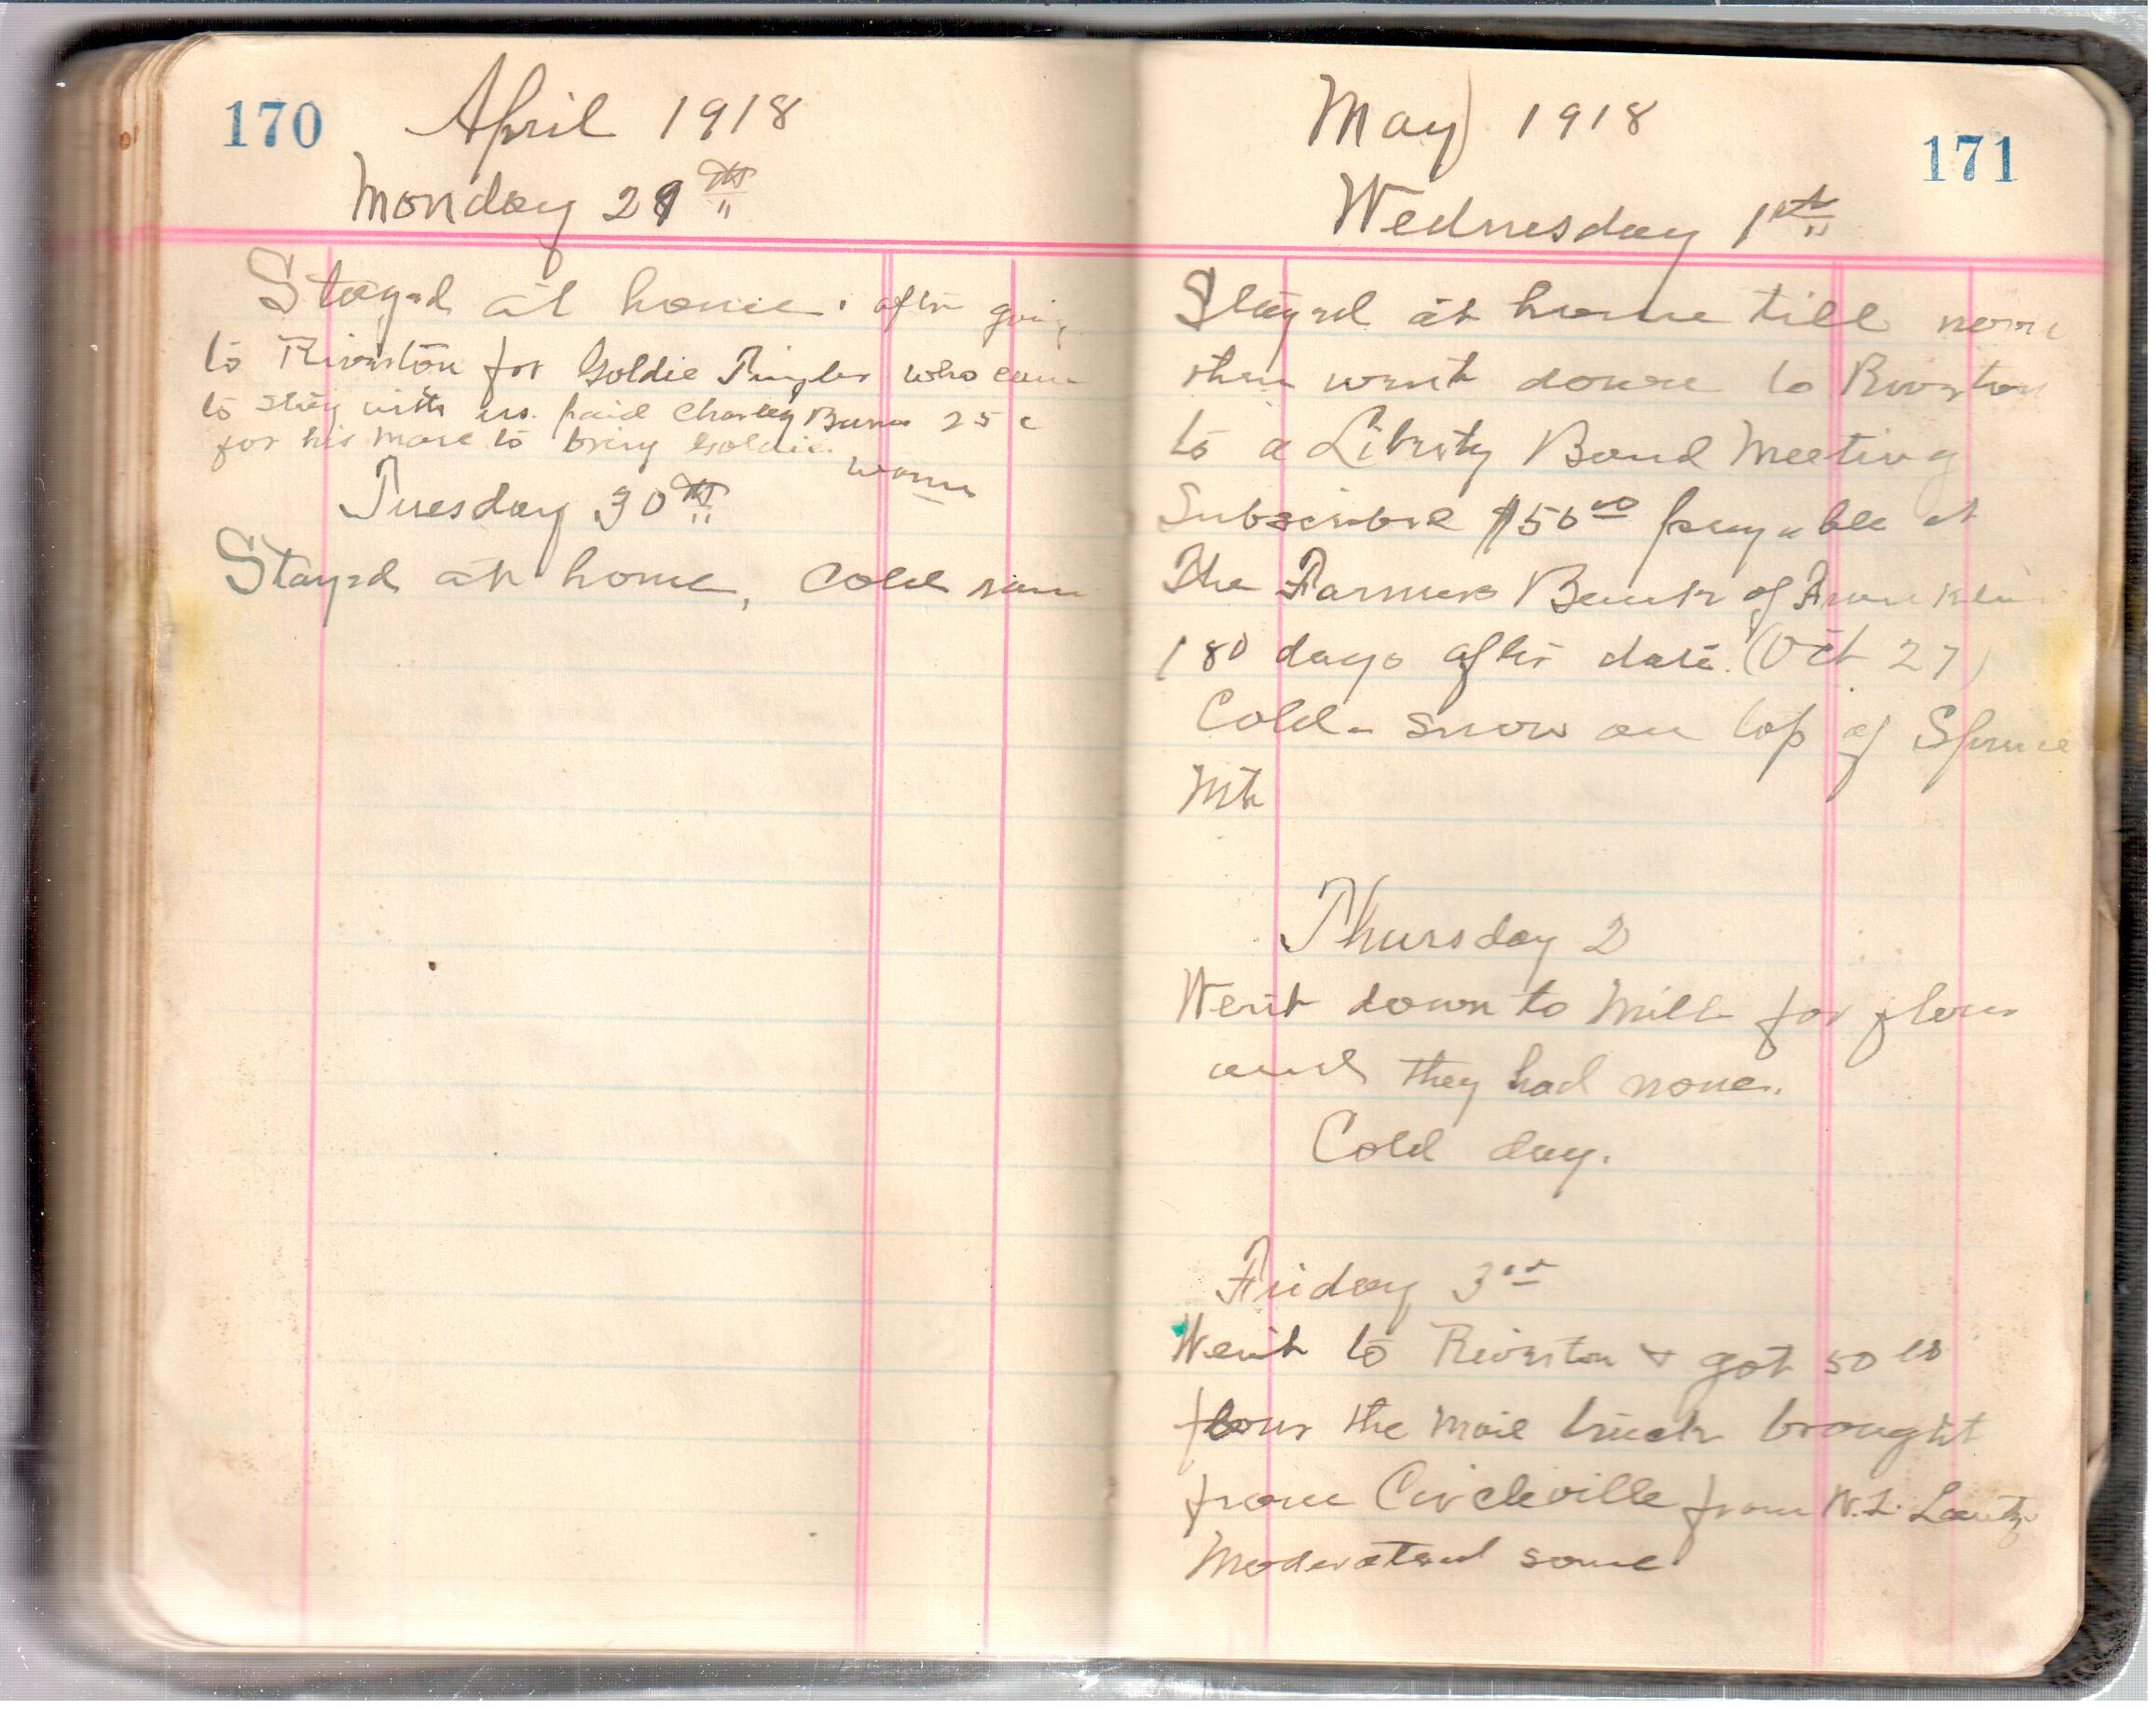 170
April 1918
Monday 29th
Stayed at home. after going
to Riverton for Goldie who came
to stay with us. paid Charley 25c
for his mare to bring Goldie.
warm
Tuesday 30th
Stayed at home, Cold rain
171
May 1918
Wednesday 1st
Stayed at home till noon
then went down to Riverton
to a Liberty Bond Meeting
Subscribed $5000 payable at
The Farmers Bank of Franklin
180 days after date. (Oct 27)
Cold - snow on top of Spruce
Mt
Thursday 2
Went down to Mill for flour
and they had none.
Cold day.
Friday 3rd
Went to Riverton & got 50 lb
flour the mail truck brought
from Circleville from Lantz
Moderated some.